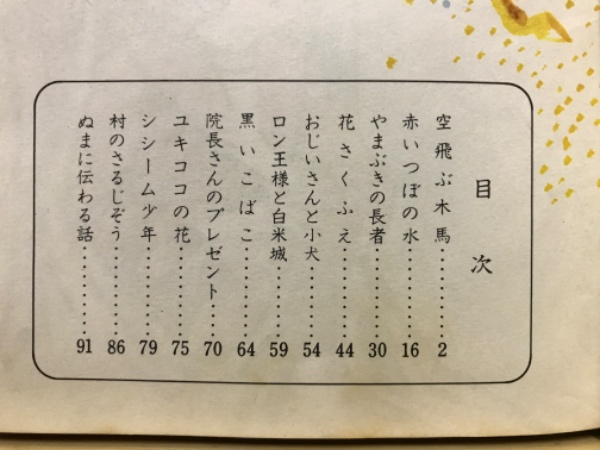 目次
空飛ぶ木馬………… 2
赤いつぼの水………… 16
やまぶきの長者………… 30
花さくふえ………… 44
おじいさんと小犬………… 54
ロン王様と白米城………… 59
黒いこばこ………… 64
院長さんのプレゼント………… 70
ユキココの花………… 75
シシーム少年………… 79
村のさるじぞう………… 86
ぬまに伝わる話………… 91